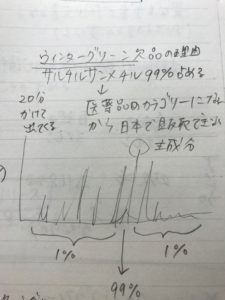 ウィンターグリーン欠品の理由
サルチルサンメチル99%占める
↓
医薬品のカテゴリーになる
から日本で販売できない
20分
かけて
出てくる
主成分
1%
1%
99%